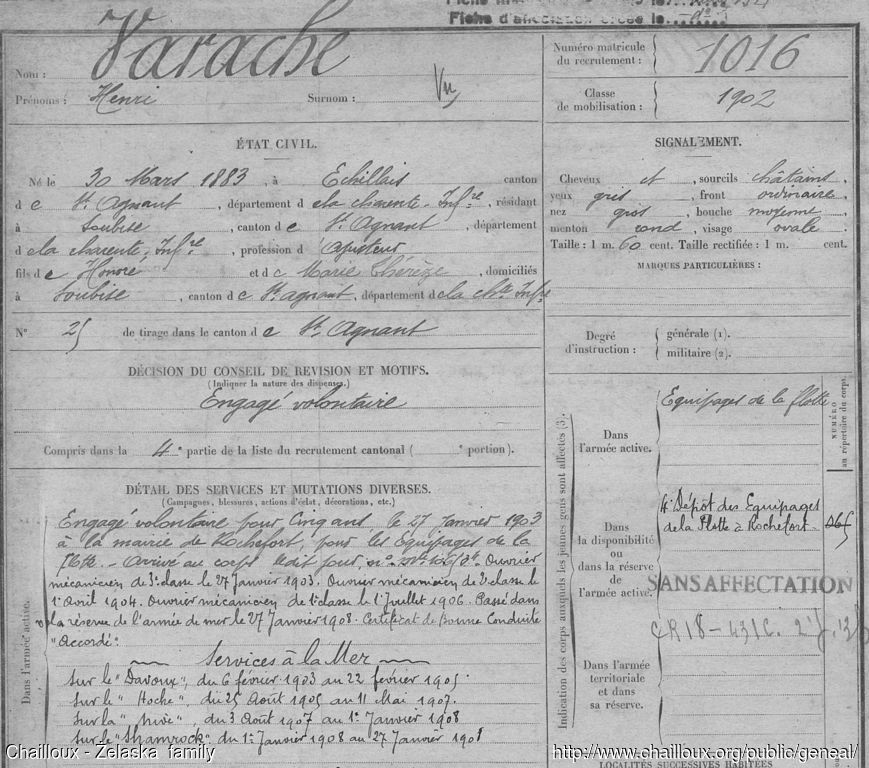 Fiche d'affectation créée le
Nom : Varache
Prénoms : Henri Surnom : Vu
Numéro matricule
du recrutement : 1016
Classe
de mobilisation : 1902
ÉTAT CIVIL.
Né le 30 Mars 1883, à Echillais canton
d e St Agnant, département d e la Charente-Infre, résidant
à Soubise, canton d e St Agnant, département
d e la Charente-Infre, profession d'ajusteur
fils d e Honoré et d e Marie Thérèze, domiciliés
à Soubise, canton d e St Agnant, département d e la Chte Infre
N° 25 de tirage dans le canton d e St Agnant
SIGNALEMENT.
Cheveux et, sourcils châtains,
yeux gris, front ordinaire
nez gros, bouche moyenne,
menton rond, visage ovale.
Taille : 1 m. 60 cent. Taille rectifiée : 1 m. cent.
MARQUES PARTICULIÈRES :
Degré
d'instruction :
générale (1).
militaire (2).
DÉCISION DU CONSEIL DE REVISION ET MOTIFS.
(Indiquer la nature des dispenses.)
Engagé volontaire
Compris dans la 4e partie de la liste du recrutement cantonal ( e portion).
DÉTAIL DES SERVICES ET MUTATIONS DIVERSES.
(Campagnes, blessures, actions d'éclat, décorations, etc.)
Dans l'armée active.
Engagé volontaire pour Cinq ans le 27 Janvier 1903
à la mairie de Rochefort, pour les Equipages de la
flotte. - Arrivé au corps le dit jour, Ouvrier
mécanicien de 3e classe le 27 Janvier 1903. Ouvrier mécanicien de 2e classe le
1er Avril 1904. Ouvrier mécanicien de 1e classe le 1er Juillet 1906. Passé dans
la réserve de l'armée de mer le 27 Janvier 1908. Certificat de Bonne Conduite
"Accordé".
Services à la Mer
Sur le "Davoux", du 6 février 1903 au 22 février 1905
Sur le "Hoche", du 25 Août 1905 au 11 Mai 1907.
Sur la "Nive", du 3 Août 1907 au 1er Janvier 1908
Sur le "Shamrock", du 1er Janvier 1908 au 27 Janvier 1908
Indication des corps auxquels les jeunes gens sont affectés (3).
NUMÉRO
au répertoire du corps.
Dans
l'armée active.
Equipages de la flotte
Dans
la disponibilité
ou
dans la réserve
de
l'armée active.
4e Dépôt des Equipages
de la Flotte à Rochefort
SANS AFFECTATION
Dans l'armée
territoriale
et dans
sa réserve.
LOCALITÉS SUCCESSIVES HABITÉES
Chailloux - Zelaska family
http://www.chailloux.org/public/geneal/